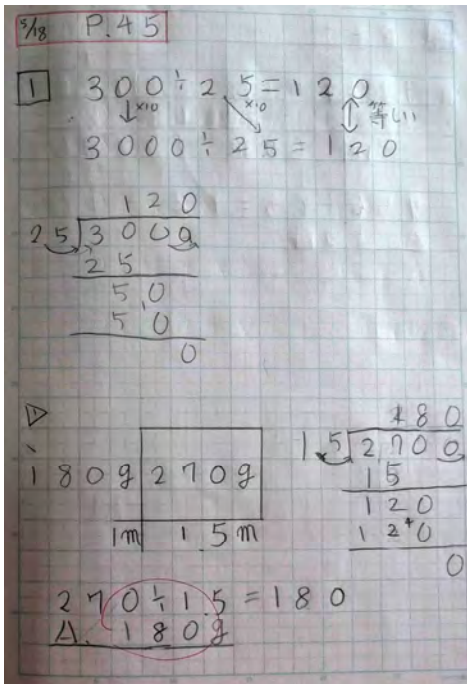 5/18 P.45
1 300÷2.5=120
×10 ×10 等しい
3000÷25=120
120
2.5 3000
25
50
50
0
1
180g 270g
1m 1.5m
180
1.5 2700
15
120
120
0
270÷1.5=180
A. 180g